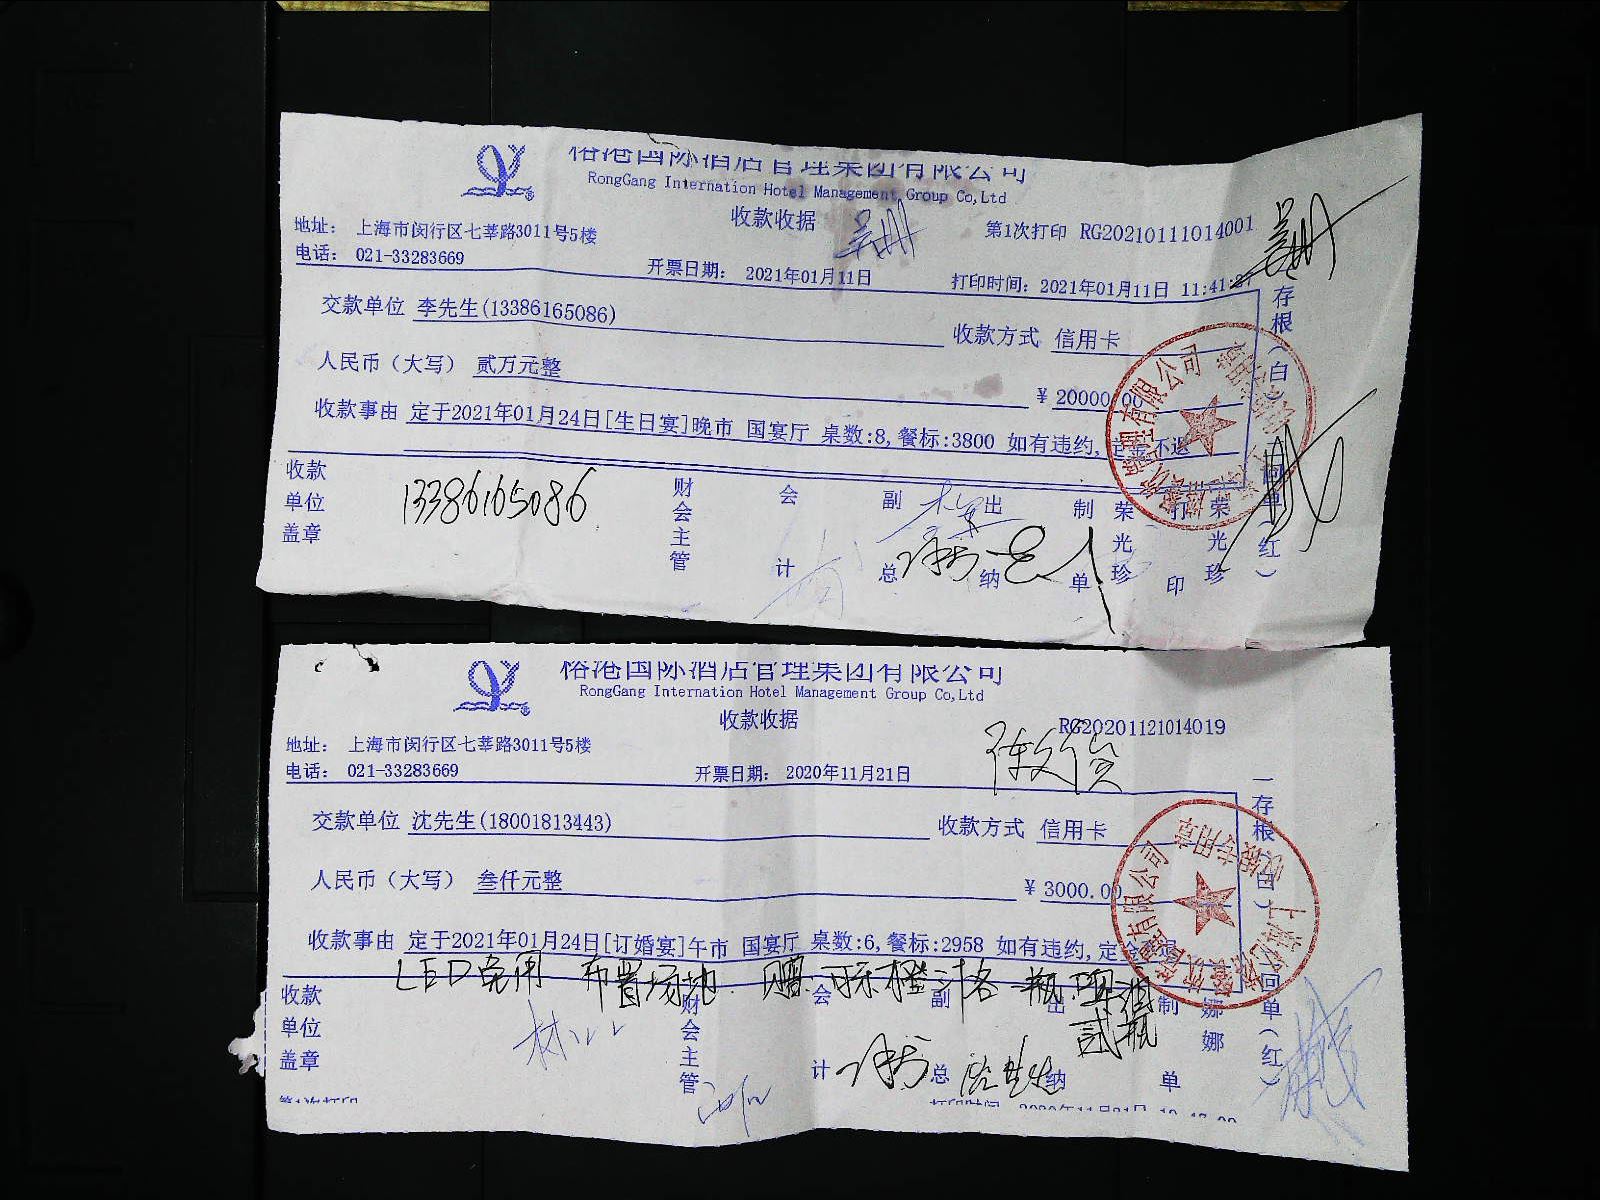 裕港国际酒店管理集团有限公司
RongGang Internation Hotel Management Group Co,Ltd
收款收据
第1次打印 RG20210111014001
地址： 上海市闵行区七莘路3011号5楼
电话： 021-33283669
开票日期： 2021年01月11日
打印时间：2021年01月11日 11:41:
交款单位 李先生(13386165086)
收款方式 信用卡
人民币（大写） 贰万元整
¥ 20000.00
收款事由 定于2021年01月24日[生日宴]晚市 国宴厅 桌数:8,餐标:3800 如有违约,定金不退
收款单位盖章
13386165086
财会主管
会计
副总
出纳
制单
荣光珍
打印
荣光珍
一存根（白）
二回单（红）
裕港国际酒店管理集团有限公司
RongGang Internation Hotel Management Group Co,Ltd
收款收据
RG20201121014019
地址： 上海市闵行区七莘路3011号5楼
电话： 021-33283669
开票日期： 2020年11月21日
交款单位 沈先生(18001813443)
收款方式 信用卡
人民币（大写） 叁仟元整
¥ 3000.00
收款事由 定于2021年01月24日[订婚宴]午市 国宴厅 桌数:6,餐标:2958 如有违约,定金不退
LED免用 布置场地
可乐橙汁各
贰瓶
收款单位盖章
财会主管
会计
副总
出纳
制单
娜娜
一存根（白）
二回单（红）
第1次打印
打印时间 2020年11月21日